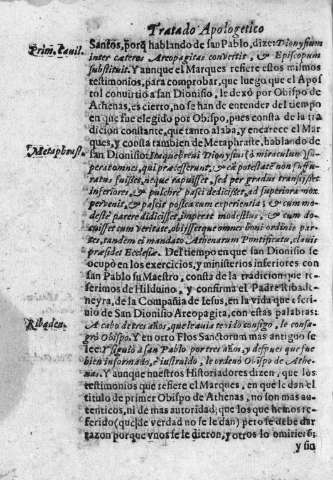 Tratado Apologetico
Santos, porq̃ hablando de san Pablo, dize: Dionysium
inter cæteros Areopagitas convertit, & Episcopum
substituit. Y aunque el Marques refiere estos mismos
testimonios, para comprobar, que luego que el Apos
tol conuirtiò a san Dionisio, le dexò por Obispo de
Athenas, es cierto, no se han de entender del tiempo
en que fue elegido por Obispo, pues consta de la tra
dicion constante, que tanto alaba, y encarece el Mar
ques, y consta tambien de Metaphraste, hablando de
san Dionisio: Itaque brevi Dionysius (ò miraculum) su-
peratomnes, qui præcesserunt; & ea potestate non
suisset, neque rapuisset, sed per gradus transcisset
inferiores, & pulchrè pasci dedicisset, ad superiora mox
pervenit, & pascit posteacum experientia; & cum mo-
destè parere didicisset, imperat modestius, & cum do-
cuisset cum veritate, obiissetque omnes boni ordinis par-
tes, tandem ei mandato Athenarum Pontificatu, clavis
præsidet Ecclesiæ. Del tiempo en que san Dionisio se
ocupò en los exercicios, y ministerios inferiores con
san Pablo su Maestro, consta de la tradicion que re-
ferimos de Hilduino, y confirma el Padre Ribade-
neyra, de la Compañia de Iesus, en la vida que escri-
viò de San Dionisio Areopagita, con estas palabras:
A cabo de tres años, que le avia tenido consigo, le consa-
grò Obispo. Y en otro Flos Sanctorum mas antiguo se
lee: Y siguiò a san Pablo por tres años, y despues que fue
bien informado, è instruido, le ordenò Obispo de Athe-
nas. Y aunque nuestros Historiadores dizen, que los
testimonios que refiere el Marques, en que le dan el
titulo de primer Obispo de Athenas, no son mas au-
tenticos, ni de mas autoridad, que los que hemos re-
ferido (que de verdad no se le dan) pero se debe dar
razon porque vnos se le dieron, y otros lo omitieró;
y sin
Prim. Pauil.
Metaphrast.
Ribaden.